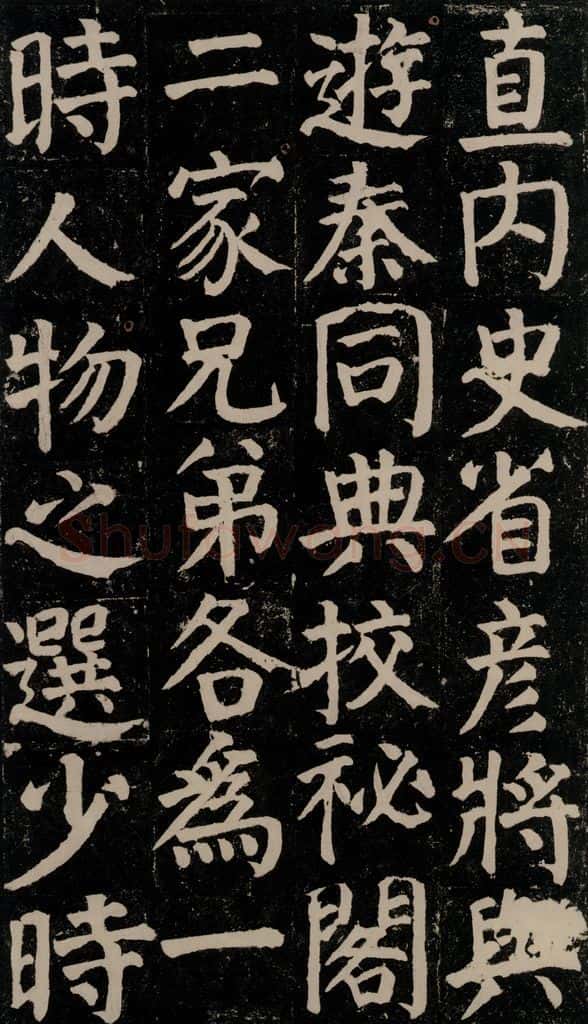 直内史省彦將與
遊秦同典挍祕閣
二家兄弟各為一
時人物之選少時
Shufawang.CN